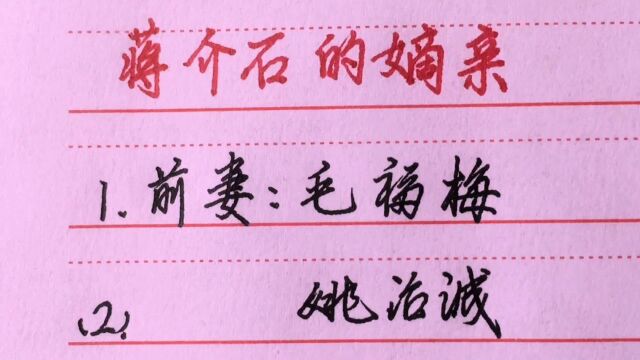 蒋介石的嫡亲
1.前妻:毛福梅
2.姚治诚